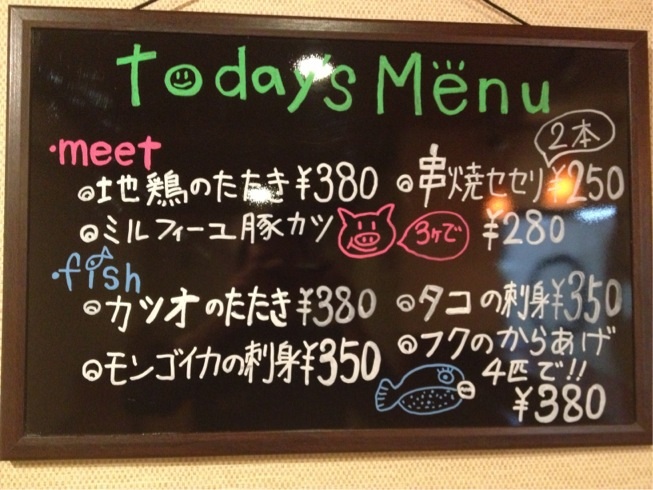 Today's Menu
・meet
◎地鶏のたたき ¥380
◎串焼セセリ ¥250
2本
◎ミルフィーユ豚カツ 3ヶで ¥280
・fish
◎カツオのたたき ¥380
◎タコの刺身 ¥350
◎モンゴイカの刺身 ¥350
◎フクのからあげ
4匹で!!
¥380